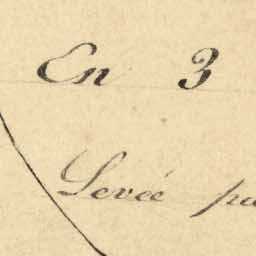 En 3
Levée